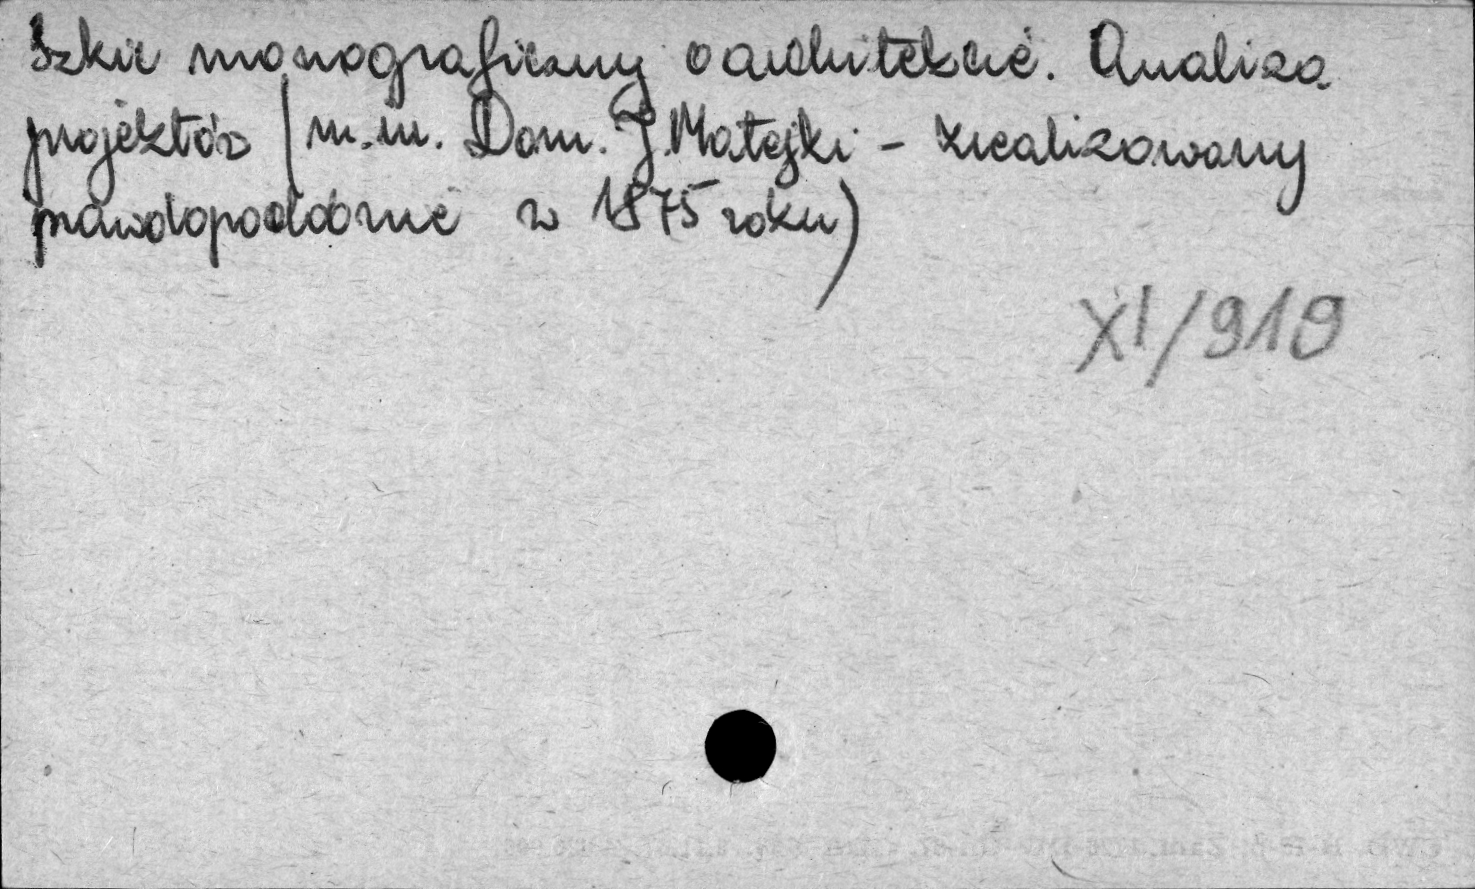 Szkic monograficzny o architekcie. Analiza
projektów (m.in. Dom. J. Matejki - zrealizowany
prawdopodobnie w 1875 roku)
XI/919